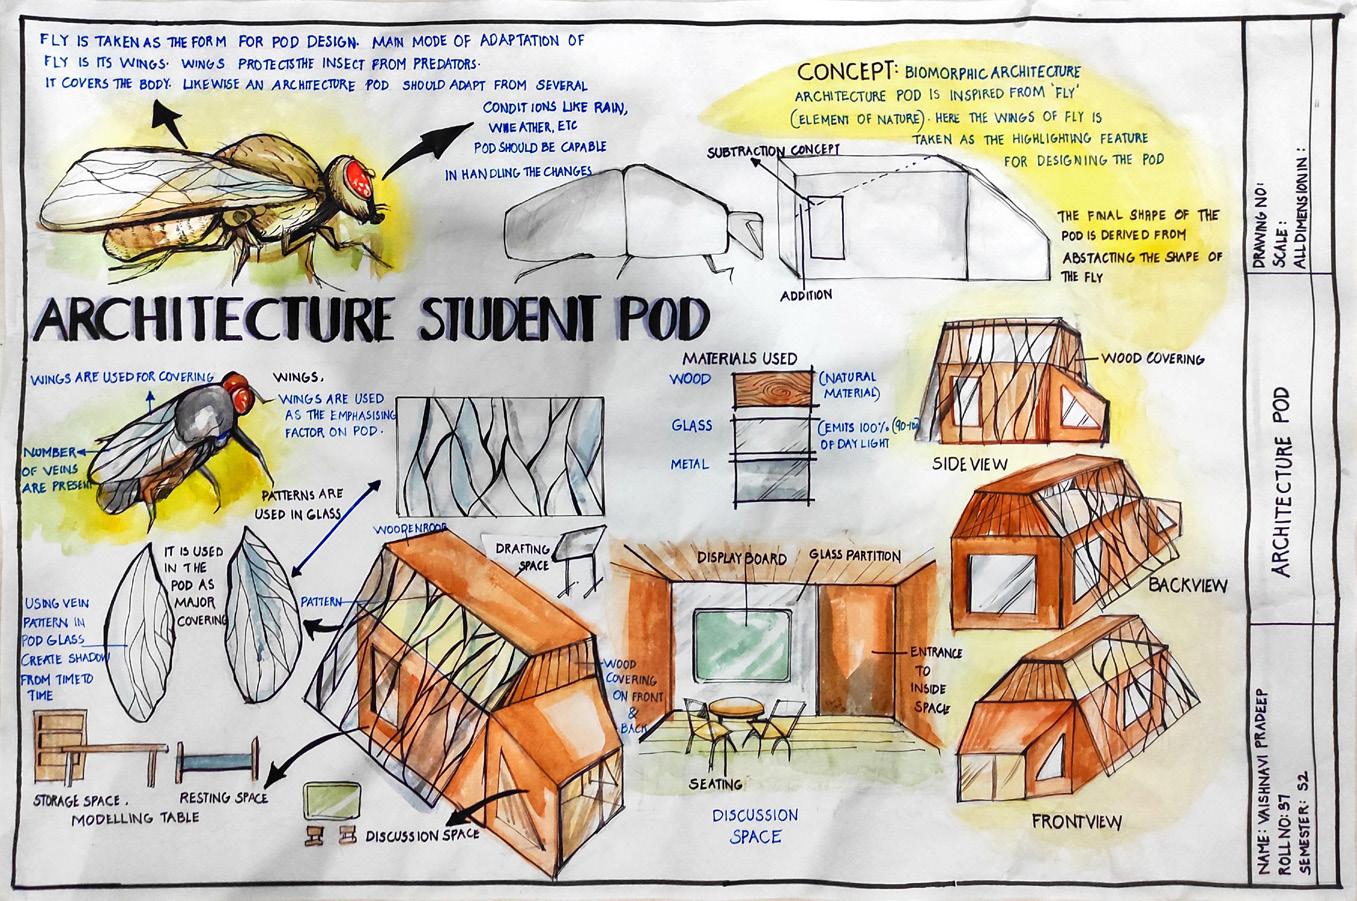 FLY IS TAKEN AS THE FORM FOR POD DESIGN. MAIN MODE OF ADAPTATION OF
FLY IS ITS WINGS. WINGS PROTECTS THE INSECT FROM PREDATORS.
IT COVERS THE BODY. LIKEWISE AN ARCHITECTURE POD SHOULD ADAPT FROM SEVERAL
CONDITIONS LIKE RAIN,
WHEATHER, ETC
POD SHOULD BE CAPABLE
IN HANDLING THE CHANGES
CONCEPT: BIOMORPHIC ARCHITECTURE
ARCHITECTURE POD IS INSPIRED FROM 'FLY'
(ELEMENT OF NATURE). HERE THE WINGS OF FLY IS
TAKEN AS THE HIGHLIGHTING FEATURE
FOR DESIGNING THE POD
SUBTRACTION CONCEPT
ADDITION
THE FINAL SHAPE OF THE
POD IS DERIVED FROM
ABSTACTING THE SHAPE OF
THE FLY
ARCHITECTURE STUDENT POD
WINGS ARE USED FOR COVERING
WINGS.
WINGS ARE USED
AS THE EMPHASISING
FACTOR ON POD.
NUMBER
OF VEINS
ARE PRESENT
PATTERNS ARE
USED IN GLASS
MATERIALS USED
WOOD
(NATURAL
MATERIAL)
GLASS
(EMITS 100% (90-100)
OF DAY LIGHT
METAL
WOOD COVERING
SIDE VIEW
BACKVIEW
FRONTVIEW
IT IS USED
IN THE
POD AS
MAJOR
COVERING
USING VEIN
PATTERN IN
POD GLASS
CREATE SHADOW
FROM TIME TO
TIME
WOODEN ROOF
PATTERN
DRAFTING
SPACE
WOOD
COVERING
ON FRONT
&
BACK
DISPLAY BOARD
GLASS PARTITION
ENTRANCE
TO
INSIDE
SPACE
SEATING
DISCUSSION
SPACE
STORAGE SPACE.
MODELLING TABLE
RESTING SPACE
DISCUSSION SPACE
DRAWING NO:
SCALE:
ALL DIMENSION IN:
ARCHITECTURE POD
NAME: VAISHNAVI PRADEEP
ROLL NO: 37
SEMESTER: S2